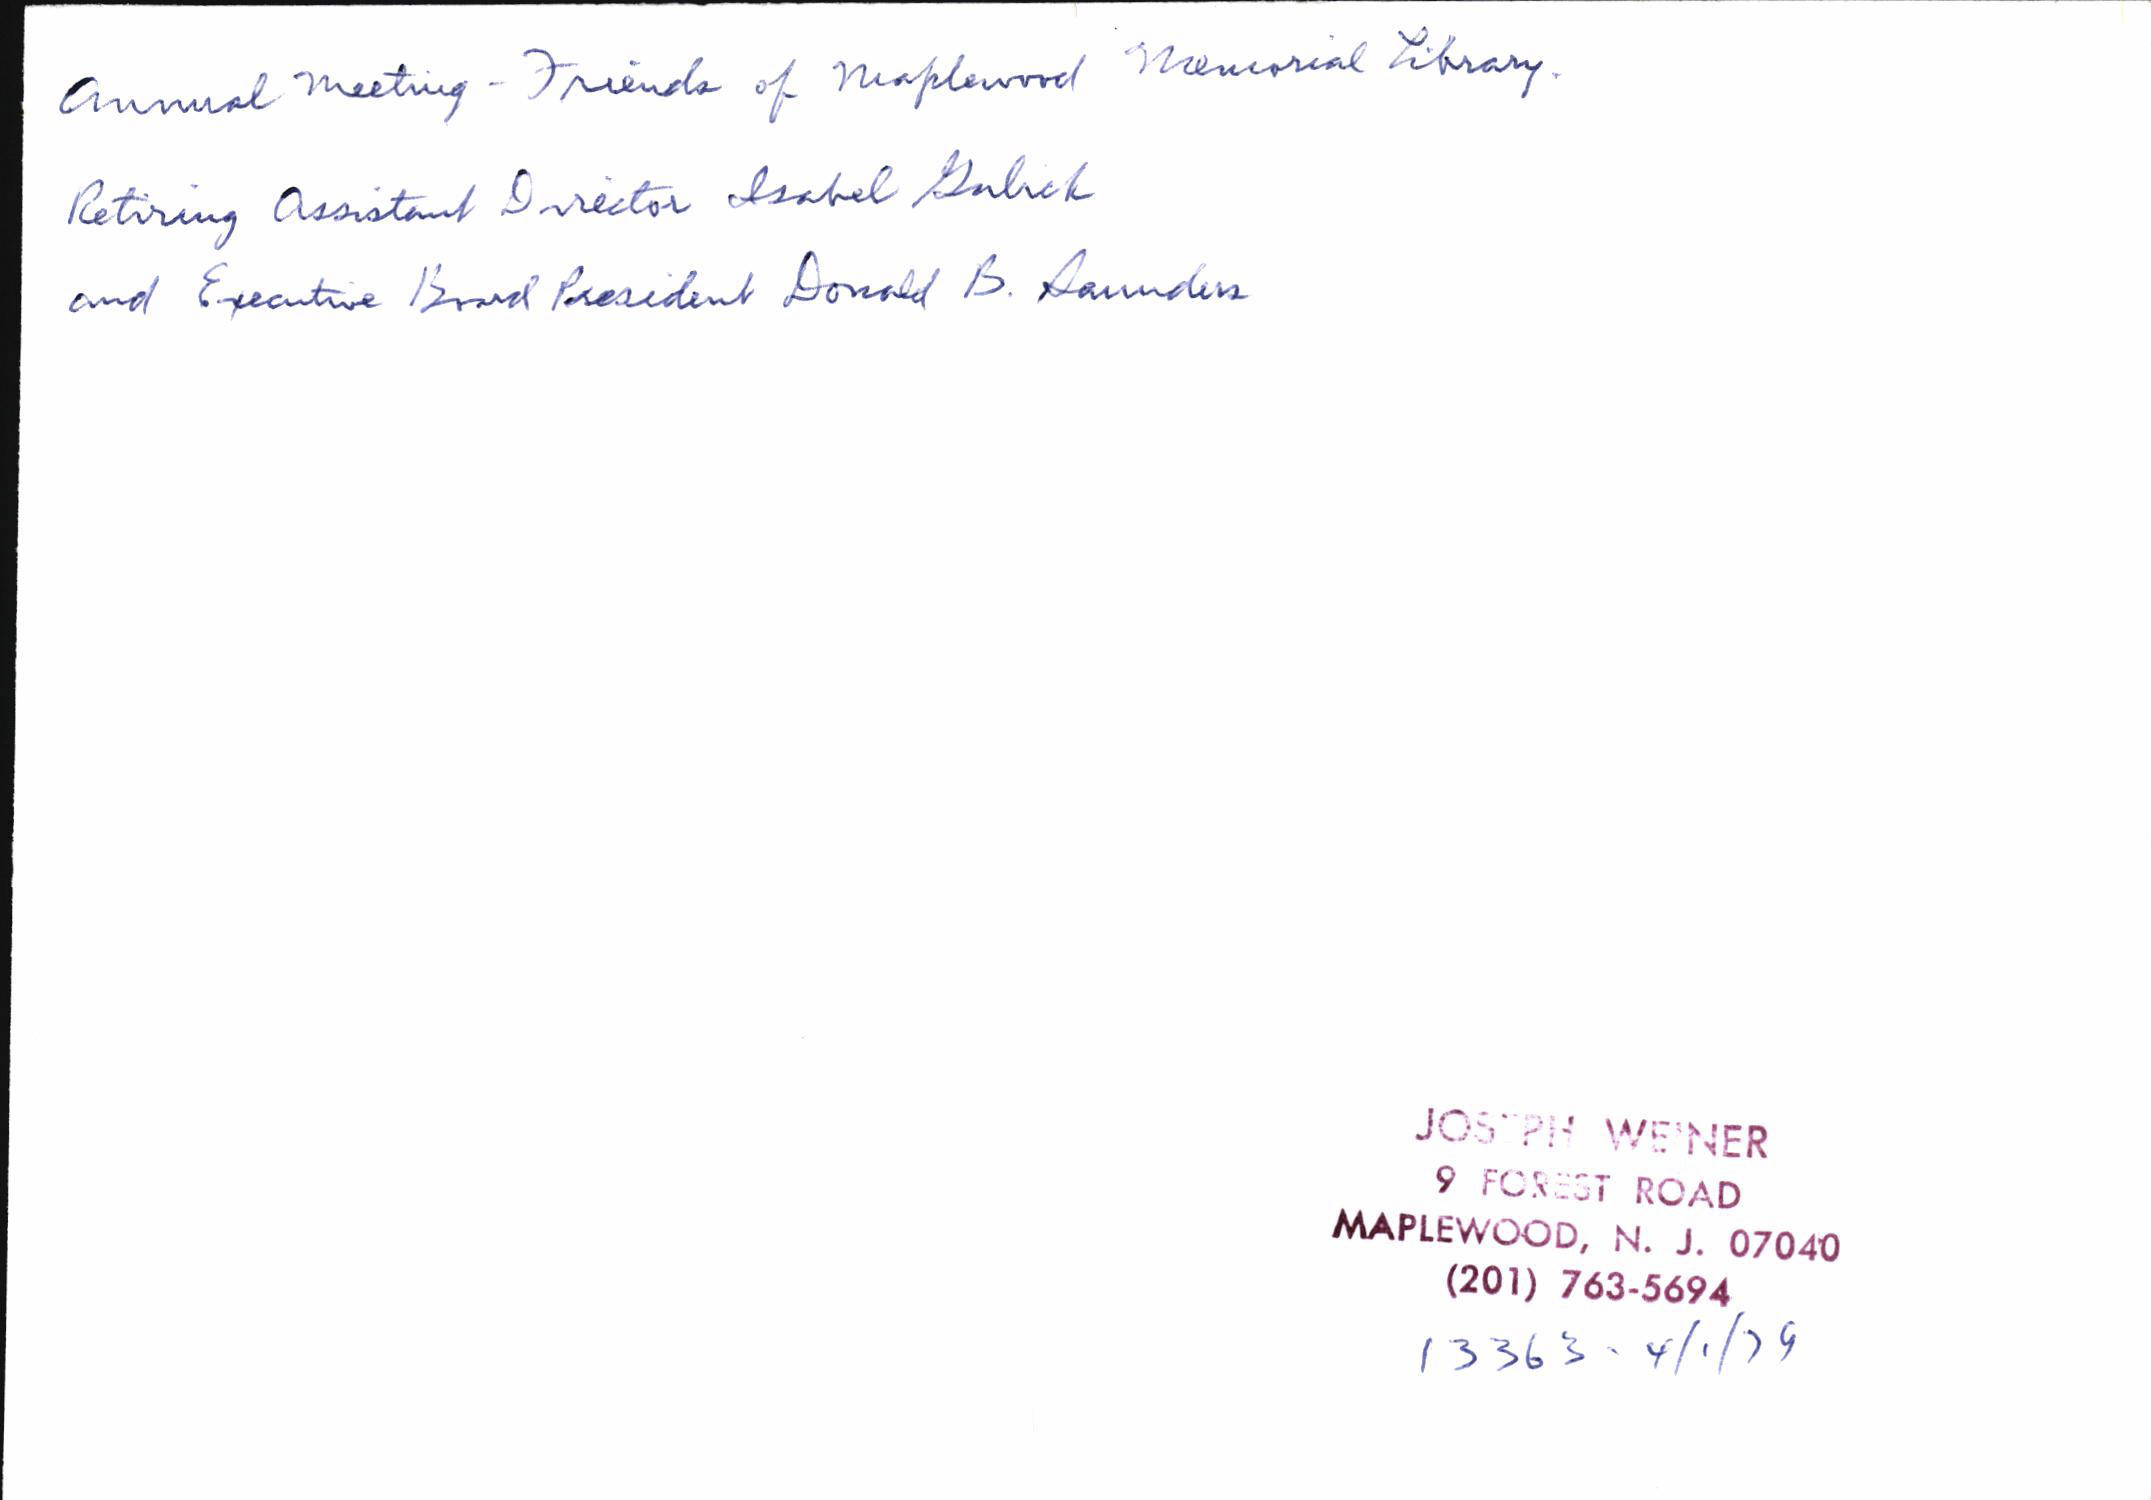 Annual Meeting - Friends of Maplewood Memorial Library.
Retiring Assistant Director Isabel Gulick
and Executive Board President Donald B. Saunders
JOSEPH WEINER
9 FOREST ROAD
MAPLEWOOD, N. J. 07040
(201) 763-5694
13363 - 4/1/79